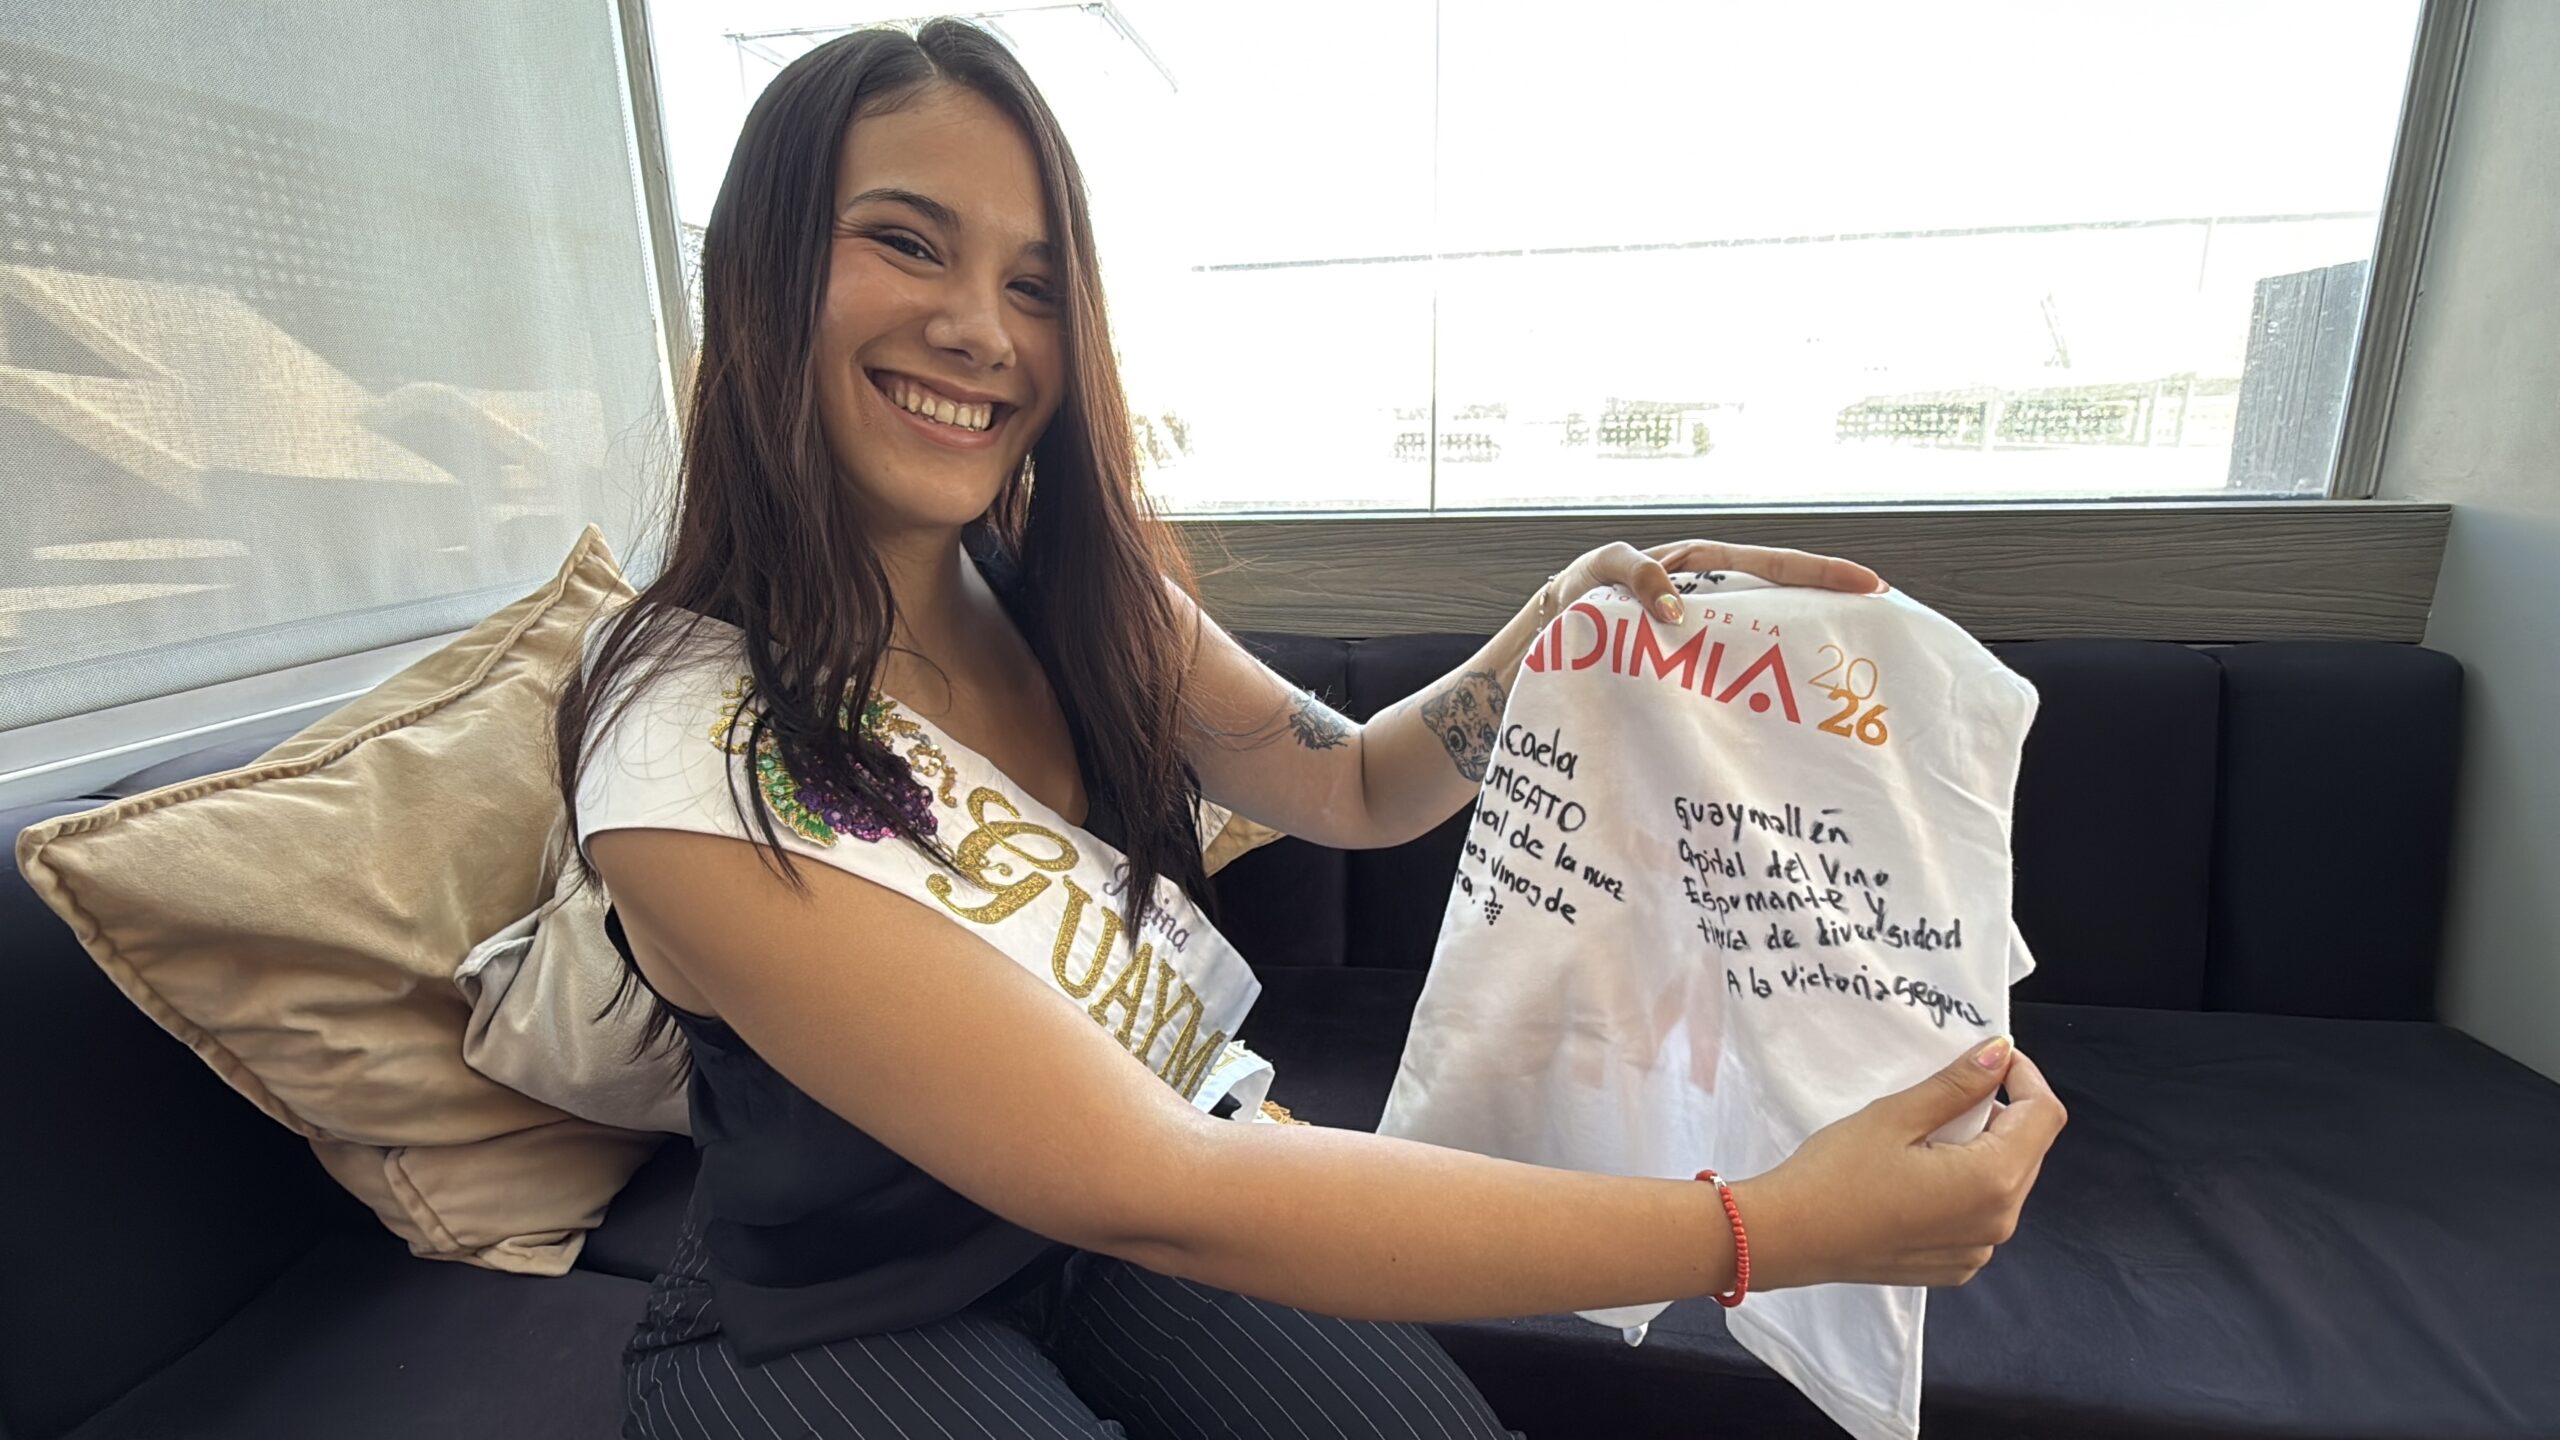 Reina
GUAYM
DE LA
NDIMIA
2026
caela
UNGATO
tal de la nuez
os vinos de
ra,
Guaymallén
Capital del Vino
Espumante y
tierra de diversidad
A la victoria segura